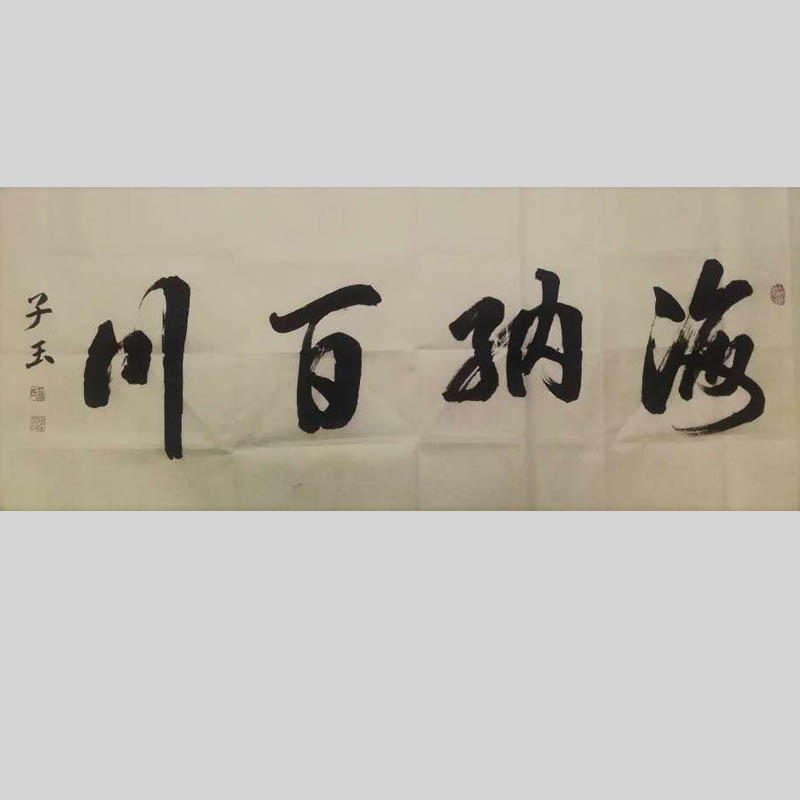 海納百川
子玉